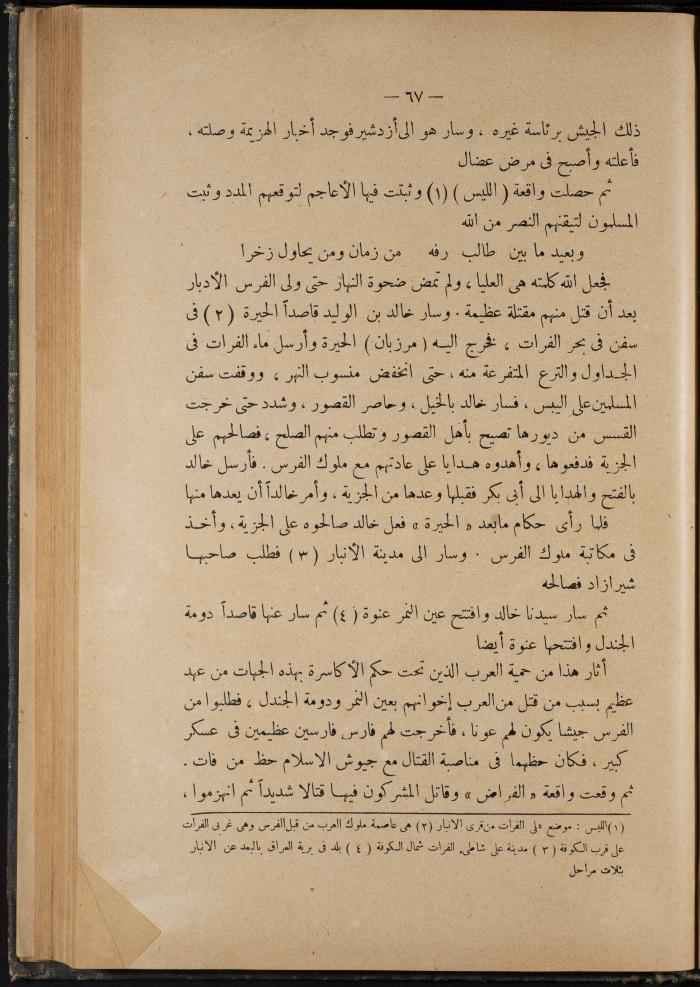 — ٦٧ —
ذلك الجيش برئاسة غيره ، وسار هو الى أزدشير فوجد أخبار الهزيمة وصلته ،
فأعلته وأصبح فى مرض عضال
ثم حصلت واقعة ( الليس ) (١) وثبتت فيها الأعاجم لتوقعهم المدد وثبت
المسلمون لتيقنهم النصر من الله
وبعيد ما بين طالب رفه من زمان ومن يحاول زخرا
فجعل الله كلمته هى العليا ، ولم تمض ضحوة النهار حتى ولى الفرس الأدبار
بعد أن قتل منهم مقتلة عظيمة . وسار خالد بن الوليد قاصداً الحيرة (٢) فى
سفن فى بحر الفرات ، فخرج اليه ( مرزبان ) الحيرة وأرسل ماء الفرات فى
الجداول والترع المتفرعة منه ، حتى انخفض منسوب النهر ، ووقفت سفن
المسلمين على اليبس ، فسار خالد بالخيل ، وحاصر القصور ، وشدد حتى خرجت
القسس من ديورها تصيح بأهل القصور وتطلب منهم الصلح ، فصالحهم على
الجزية فدفعوها ، وأهدوه هدايا على عادتهم مع ملوك الفرس . فأرسل خالد
بالفتح والهدايا الى أبى بكر فقبلها وعدها من الجزية ، وأمر خالداً أن يعدها منها
فلما رأى حكام مابعد « الحيرة » فعل خالد صالحوه على الجزية ، وأخذ
فى مكاتبة ملوك الفرس . وسار الى مدينة الأنبار (٣) فطلب صاحبها
شيرازاد فصالحه
ثم سار سيدنا خالد وافتتح عين التمر عنوة (٤) ثم سار عنها قاصداً دومة
الجندل وافتتحها عنوة أيضا
أثار هذا من حمية العرب الذين تحت حكم الأكاسرة بهذه الجهات من عهد
عظيم بسبب من قتل من العرب إخوانهم بعين التمر ودومة الجندل ، فطلبوا من
الفرس جيشا يكون لهم عونا ، فأخرجت لهم فارس فارسين عظيمين فى عسكر
كبير ، فكان حظهما فى مناصبة القتال مع جيوش الاسلام حظ من فات .
ثم وقعت واقعة « الفراض » وقاتل المشركون فيها قتالا شديداً ثم انهزموا ،
(١) الليس : موضع على الفرات من قرى الانبار (٢) هى عاصمة ملوك العرب من قبل الفرس وهى غربى الفرات
على قرب الكوفة (٣) مدينة على شاطىء الفرات شمال الكوفة (٤) بلد فى برية العراق بالبعد عن الانبار
بثلاث مراحل